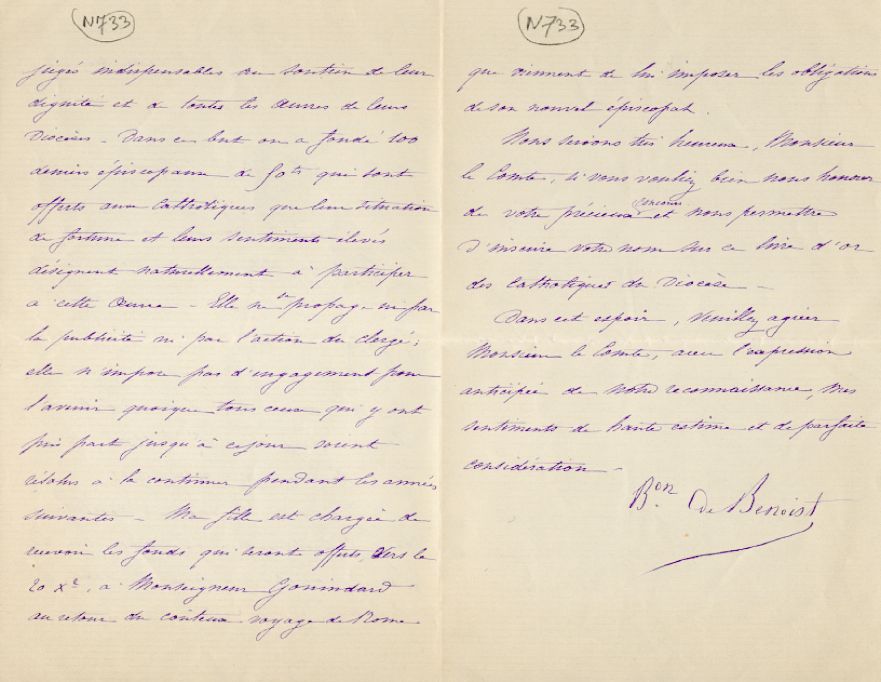 N733
jugés indispensables au soutien de leur
dignité et à toutes les œuvres de leurs
Diocèses. Dans ce but on a fondé 100
deniers épiscopaux de 50 fs qui sont
offerts aux Catholiques que leur situation
de fortune et leurs sentiments élevés
désignent naturellement à participer
à cette Œuvre - Elle ne se propage ni par
la publicité ni par l'action du clergé ;
elle n'impose pas d'engagement pour
l'avenir quoique tous ceux qui y ont
pris part jusqu'à ce jour soient
résolus à la continuer pendant les années
suivantes - Ma fille est chargée de
recevoir les fonds qui seront offerts, vers le
20 Xe, à Monseigneur Gonindard
au retour du coûteux voyage de Rome
N733
que viennent de lui imposer les obligations
de son nouvel épiscopat.
Nous serions très heureux, Monsieur
le Comte, si vous vouliez bien nous honorer
de votre précieux concours et nous permettre
d'inscrire votre nom sur ce livre d'or
des Catholiques du Diocèse -
Dans cet espoir, Veuillez agréer
Monsieur le Comte, avec l'expression
anticipée de notre reconnaissance, mes
sentiments de haute estime et de parfaite
considération -
Bon de Benoist